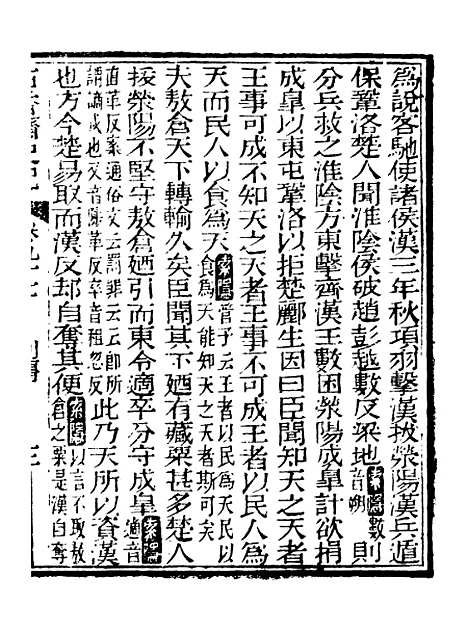 為說客馳使諸侯漢三年秋項羽擊漢拔滎陽漢兵遁
保鞏洛楚人聞淮陰侯破趙彭越數反梁地索隱數音朔則
分兵救之淮陰方東擊齊漢王數困滎陽成皐計欲捐
成皐以東屯鞏洛以拒楚酈生因曰臣聞知天之天者
王事可成不知天之天者王事不可成王者以民人為
天而民人以食為天索隱管子云王者以民為天民以食為天能知天之天者斯可矣
夫敖倉天下轉輸久矣臣聞其下廼有藏粟甚多楚人
拔滎陽不堅守敖倉廼引而東令適卒分守成皐索隱適音
直革反案通俗文云罰罪云讁即所謂讁戍也又音陟革反卒音租忽反此乃天所以資漢
也方今楚易取而漢反却自奪其便索隱以言不取敖倉之粟是漢自奪
卷九十七 列傳 三